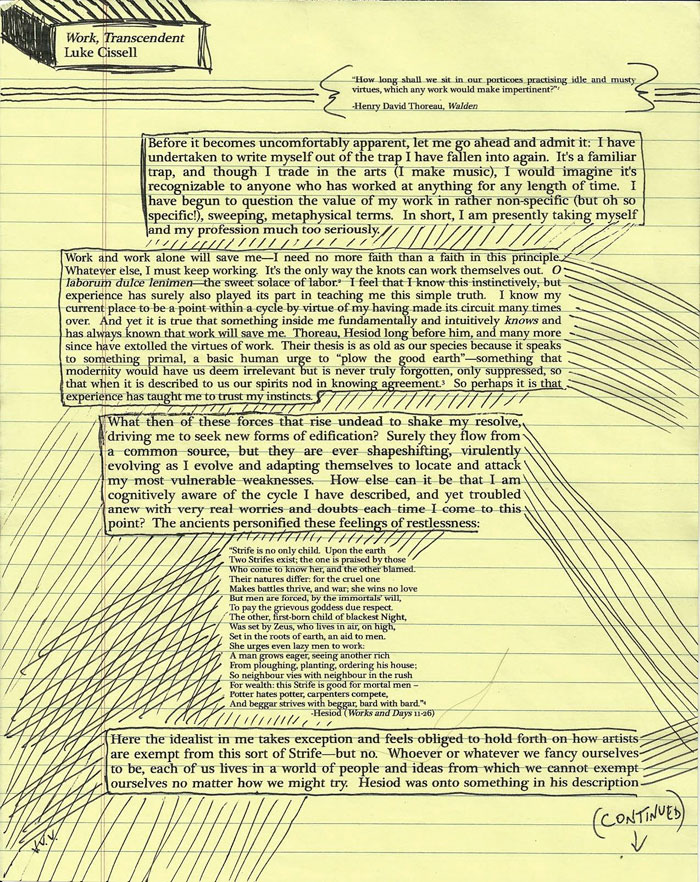 Work, Transcendent
Luke Cissell
"How long shall we sit in our porticoes practising idle and musty
virtues, which any work would make impertinent?"¹
-Henry David Thoreau, Walden
Before it becomes uncomfortably apparent, let me go ahead and admit it: I have
undertaken to write myself out of the trap I have fallen into again. It's a familiar
trap, and though I trade in the arts (I make music), I would imagine it's
recognizable to anyone who has worked at anything for any length of time. I
have begun to question the value of my work in rather non-specific (but oh so
specific!), sweeping, metaphysical terms. In short, I am presently taking myself
and my profession much too seriously.
Work and work alone will save me—I need no more faith than a faith in this principle.
Whatever else, I must keep working. It's the only way the knots can work themselves out. O
laborum dulce lenimen—the sweet solace of labor.² I feel that I know this instinctively, but
experience has surely also played its part in teaching me this simple truth. I know my
current place to be a point within a cycle by virtue of my having made its circuit many times
over. And yet it is true that something inside me fundamentally and intuitively knows and
has always known that work will save me. Thoreau, Hesiod long before him, and many more
since have extolled the virtues of work. Their thesis is as old as our species because it speaks
to something primal, a basic human urge to "plow the good earth"—something that
modernity would have us deem irrelevant but is never truly forgotten, only suppressed, so
that when it is described to us our spirits nod in knowing agreement.³ So perhaps it is that
experience has taught me to trust my instincts.
What then of these forces that rise undead to shake my resolve,
driving me to seek new forms of edification? Surely they flow from
a common source, but they are ever shapeshifting, virulently
evolving as I evolve and adapting themselves to locate and attack
my most vulnerable weaknesses. How else can it be that I am
cognitively aware of the cycle I have described, and yet troubled
anew with very real worries and doubts each time I come to this
point? The ancients personified these feelings of restlessness:
"Strife is no only child. Upon the earth
Two Strifes exist; the one is praised by those
Who come to know her, and the other blamed.
Their natures differ: for the cruel one
Makes battles thrive, and war; she wins no love
But men are forced, by the immortals' will,
To pay the grievous goddess due respect.
The other, first-born child of blackest Night,
Was set by Zeus, who lives in air, on high,
Set in the roots of earth, an aid to men.
She urges even lazy men to work:
A man grows eager, seeing another rich
From ploughing, planting, ordering his house;
So neighbour vies with neighbour in the rush
For wealth: this Strife is good for mortal men –
Potter hates potter, carpenters compete,
And beggar strives with beggar, bard with bard."⁴
-Hesiod (Works and Days 11-26)
Here the idealist in me takes exception and feels obliged to hold forth on how artists
are exempt from this sort of Strife—but no. Whoever or whatever we fancy ourselves
to be, each of us lives in a world of people and ideas from which we cannot exempt
ourselves no matter how we might try. Hesiod was onto something in his description
(CONTINUED)